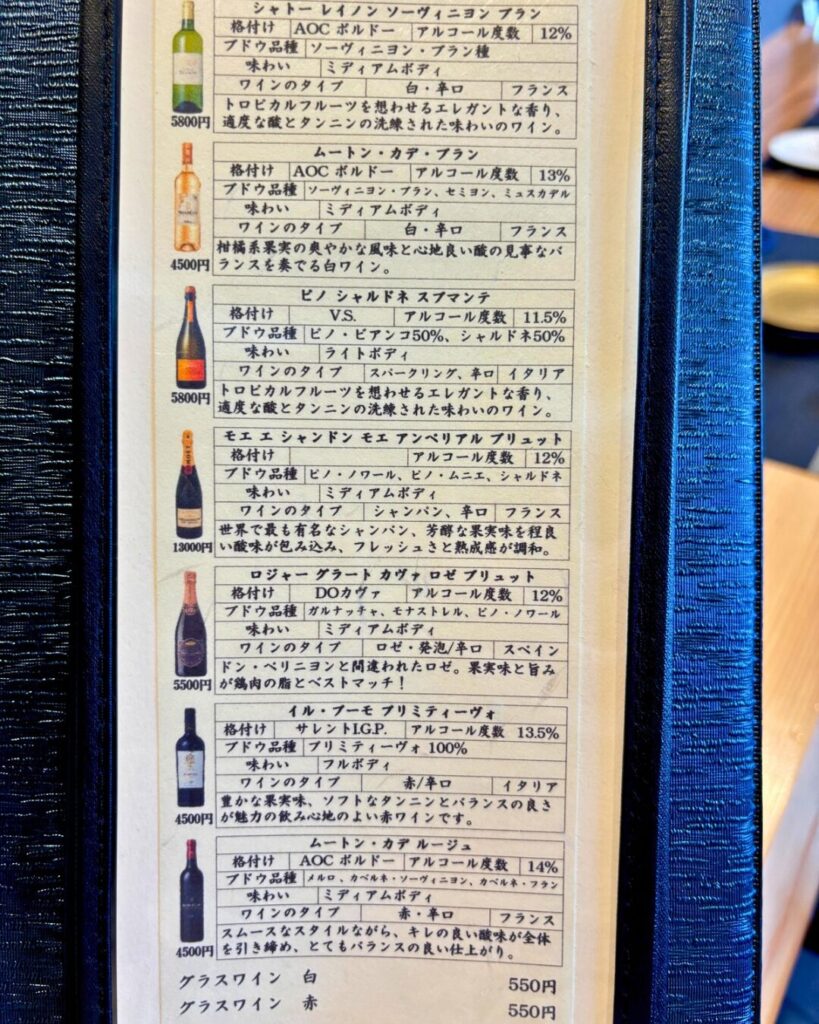 シャトー レイノン ソーヴィニヨン ブラン
格付け AOC ボルドー アルコール度数 12%
ブドウ品種 ソーヴィニヨン・ブラン種
味わい ミディアムボディ
ワインのタイプ 白・辛口 フランス
トロピカルフルーツを想わせるエレガントな香り、
適度な酸とタンニンの洗練された味わいのワイン。
5800円
ムートン・カデ・ブラン
格付け AOC ボルドー アルコール度数 13%
ブドウ品種 ソーヴィニヨン・ブラン、セミヨン、ミュスカデル
味わい ミディアムボディ
ワインのタイプ 白・辛口 フランス
柑橘系果実の爽やかな風味と心地良い酸の見事なバ
ランスを奏でる白ワイン。
4500円
ピノ シャルドネ スプマンテ
格付け V.S. アルコール度数 11.5%
ブドウ品種 ピノ・ビアンコ50%、シャルドネ50%
味わい ライトボディ
ワインのタイプ スパークリング、辛口 イタリア
トロピカルフルーツを想わせるエレガントな香り、
適度な酸とタンニンの洗練された味わいのワイン。
5800円
モエ エ シャンドン モエ アンペリアル ブリュット
格付け アルコール度数 12%
ブドウ品種 ピノ・ノワール、ピノ・ムニエ、シャルドネ
味わい ミディアムボディ
ワインのタイプ シャンパン、辛口 フランス
世界で最も有名なシャンパン、芳醇な果実味を程良
い酸味が包み込み、フレッシュさと熟成感が調和。
13000円
ロジャー グラート カヴァ ロゼ ブリュット
格付け DOカヴァ アルコール度数 12%
ブドウ品種 ガルナッチャ、モナストレル、ピノ・ノワール
味わい ミディアムボディ
ワインのタイプ ロゼ・発泡/辛口 スペイン
ドン・ペリニヨンと間違われたロゼ。果実味と旨み
が鶏肉の脂とベストマッチ！
5500円
イル・プーモ プリミティーヴォ
格付け サレントI.G.P. アルコール度数 13.5%
ブドウ品種 プリミティーヴォ 100%
味わい フルボディ
ワインのタイプ 赤/辛口 イタリア
豊かな果実味、ソフトなタンニンとバランスの良さ
が魅力の飲み心地のよい赤ワインです。
4500円
ムートン・カデ ルージュ
格付け AOC ボルドー アルコール度数 14%
ブドウ品種 メルロ、カベルネ・ソーヴィニヨン、カベルネ・フラン
味わい ミディアムボディ
ワインのタイプ 赤・辛口 フランス
スムースなスタイルながら、キレの良い酸味が全体
を引き締め、とてもバランスの良い仕上がり。
4500円
グラスワイン 白 550円
グラスワイン 赤 550円